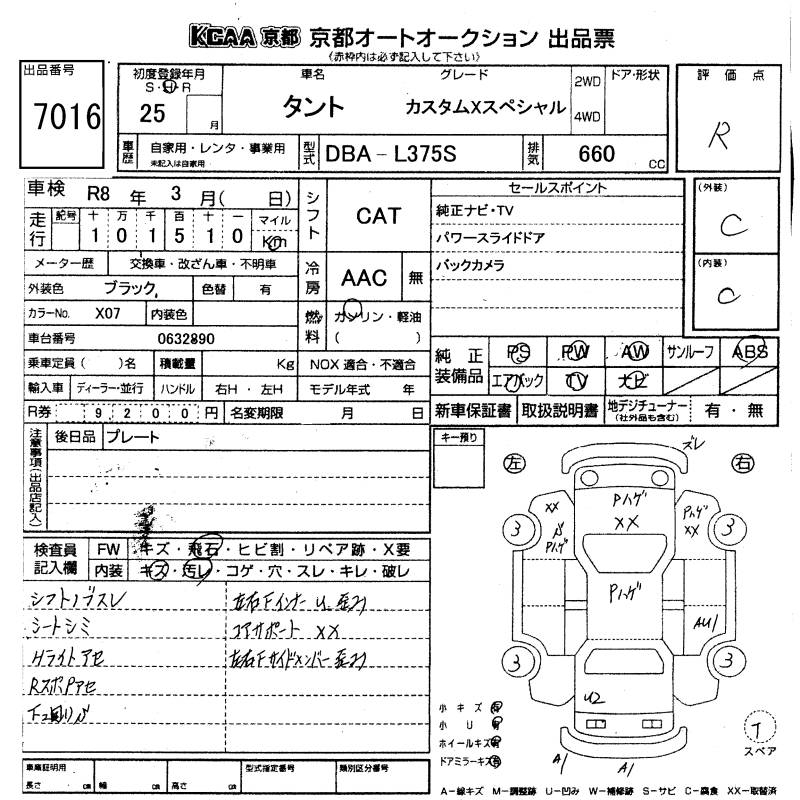 KCAA 京都 京都オートオークション 出品票
(赤枠内は必ず記入して下さい)
出品番号
7016
初度登録年月
S・H・R
25 月
車名
タント
グレード
カスタムXスペシャル
2WD
4WD
ドア・形状
評価点
R
車歴
自家用・レンタ・事業用
未記入は自家用
型式
DBA-L375S
排気
660 CC
車検 R8 年 3 月( 日)
走行
記号 十 万 千 百 十 一 マイル
1 0 1 5 1 0 Km
メーター歴 交換車・改ざん車・不明車
外装色 ブラック 色替 有
カラーNo. X07 内装色
車台番号 0632890
乗車定員( )名 積載量 Kg
輸入車 ディーラー・並行 ハンドル 右H・左H
R券 9,200円 名変期限 月 日
シフト CAT
冷房 AAC 無
燃料 ガソリン・軽油
( )
NOX 適合・不適合
モデル年式 年
セールスポイント
純正ナビ・TV
パワースライドドア
バックカメラ
(外装)
C
(内装)
C
純正装備品
PS PW AW サンルーフ ABS
エアバック TV ナビ
新車保証書 取扱説明書 地デジチューナー(社外品も含む) 有・無
注意事項(出品店記入)
後日品 プレート
キー預り
検査員記入欄
FW キズ・飛石・ヒビ割・リペア跡・X要
内装 キズ・汚レ・コゲ・穴・スレ・キレ・破レ
シフトノブスレ
シートシミ
Hライトアセ
RスポPアセ
コアサポート XX
左 右
ズレ
Pハゲ
XX
XX
Pハゲ
Pハゲ
XX
Pハゲ
3 3
3 3
AU1
U2
A1
A1
T
スペア
小キズ 有
小U 有
ホイールキズ 有
ドアミラーキズ 有
車庫証明用
長さ cm 幅 cm 高さ cm
型式指定番号
類別区分番号
A-線キズ M-調整跡 U-凹み W-補修跡 S-サビ C-腐食 XX-取替済